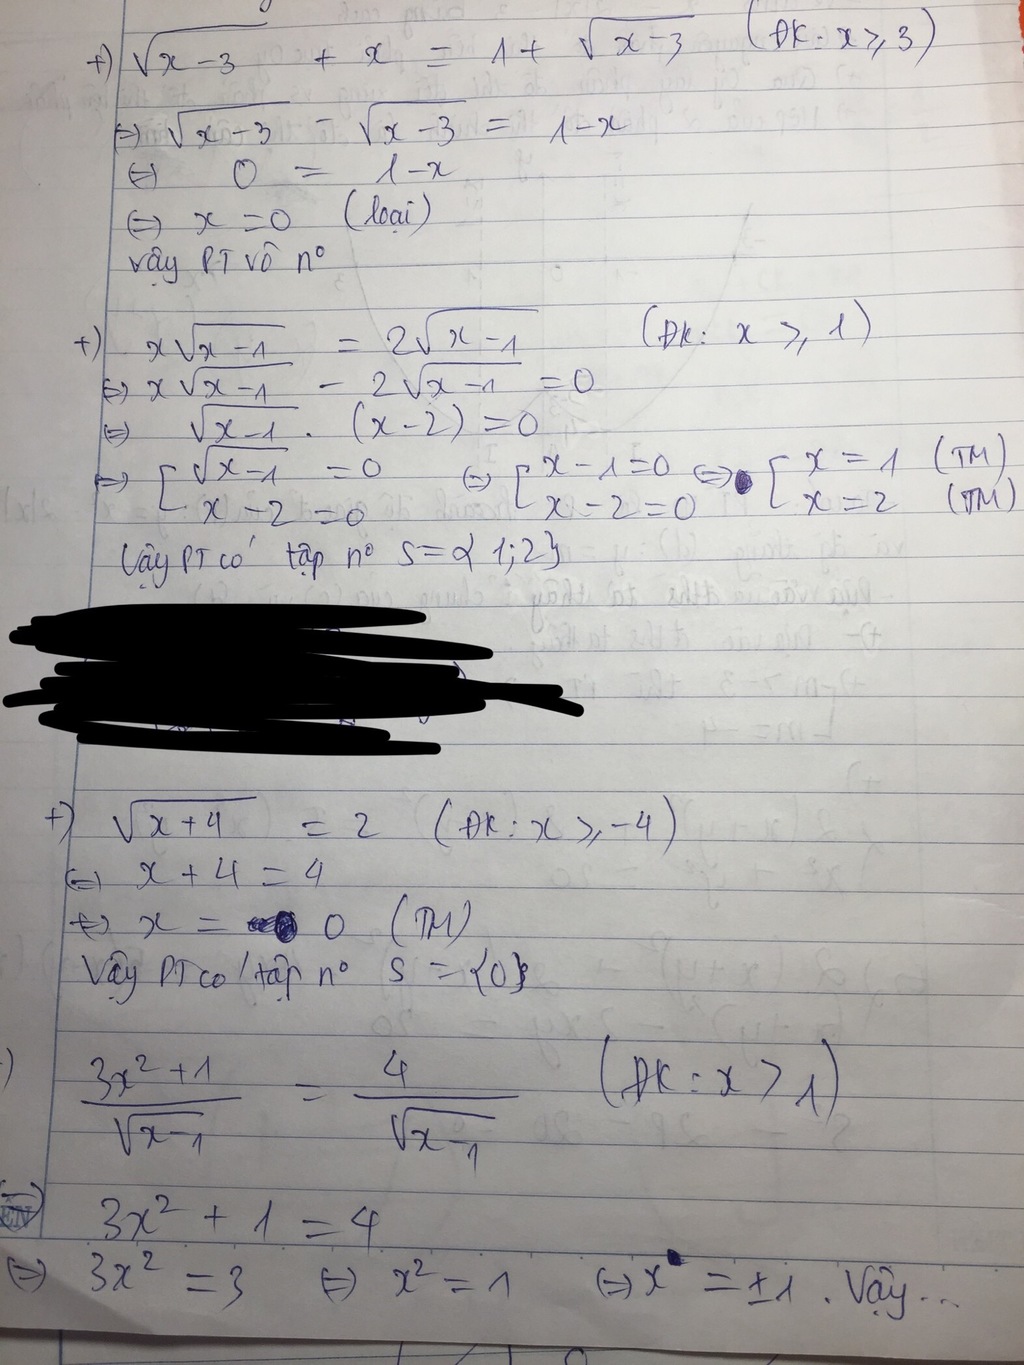 +) √(x-3) + x = 1 + √(x-3) (ĐK: x ≥ 3)
⇔ √(x-3) - √(x-3) = 1-x
⇔ 0 = 1-x
⇔ x = 0 (loại)
Vậy PT vô n°
+) x√(x-1) = 2√(x-1) (ĐK: x ≥ 1)
⇔ x√(x-1) - 2√(x-1) = 0
⇔ √(x-1) . (x-2) = 0
⇔ [√(x-1) = 0 ⇔ [x-1=0 ⇔ [x = 1 (TM)
x-2=0 x-2=0 x=2 (TM)
Vậy PT có tập n° S={1;2}
+) √(x+4) = 2 (ĐK: x ≥ -4)
⇔ x + 4 = 4
⇔ x = 0 (TM)
Vậy PT có tập n° S = {0}
) (3x²+1)/√(x-1) = 4/√(x-1) (ĐK: x > 1)
3x² + 1 = 4
⇔ 3x² = 3 ⇔ x² = 1 ⇔ x = ±1. Vậy...